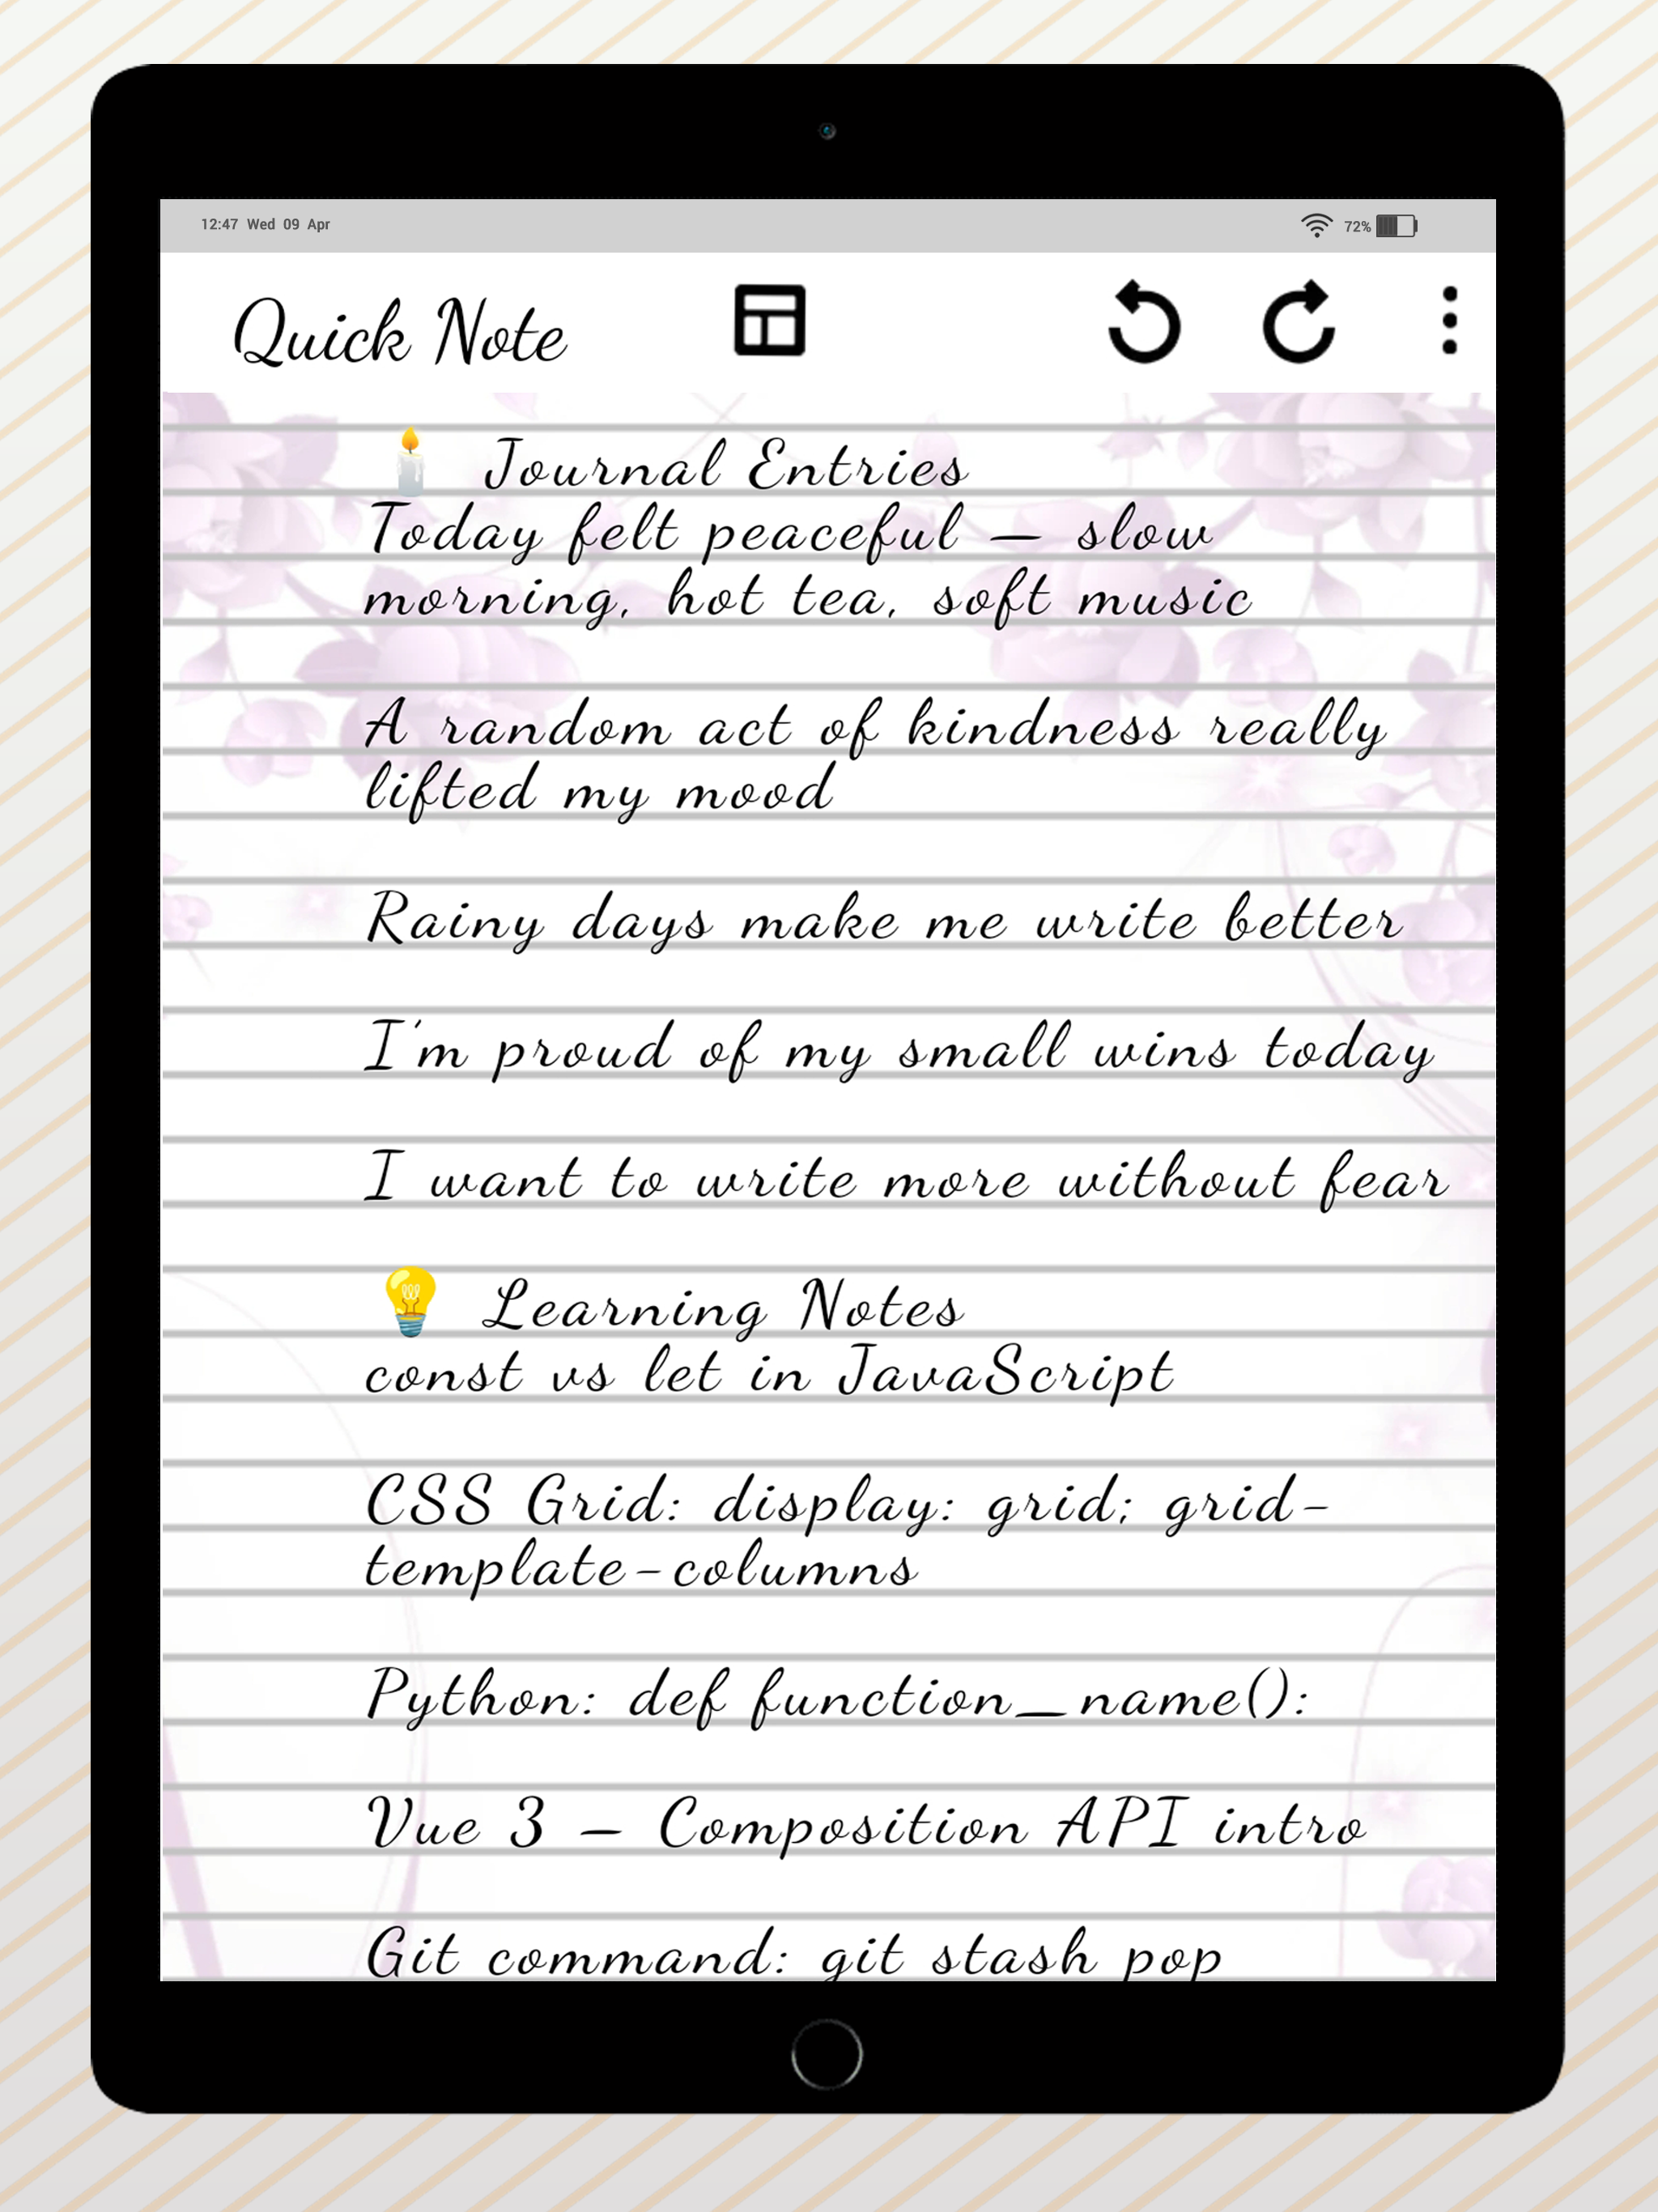 12:47 Wed 09 Apr
72%
Quick Note
🕯️ Journal Entries
Today felt peaceful — slow
morning, hot tea, soft music
A random act of kindness really
lifted my mood
Rainy days make me write better
I'm proud of my small wins today
I want to write more without fear
💡 Learning Notes
const vs let in JavaScript
CSS Grid: display: grid; grid-
template-columns
Python: def function_name():
Vue 3 – Composition API intro
Git command: git stash pop